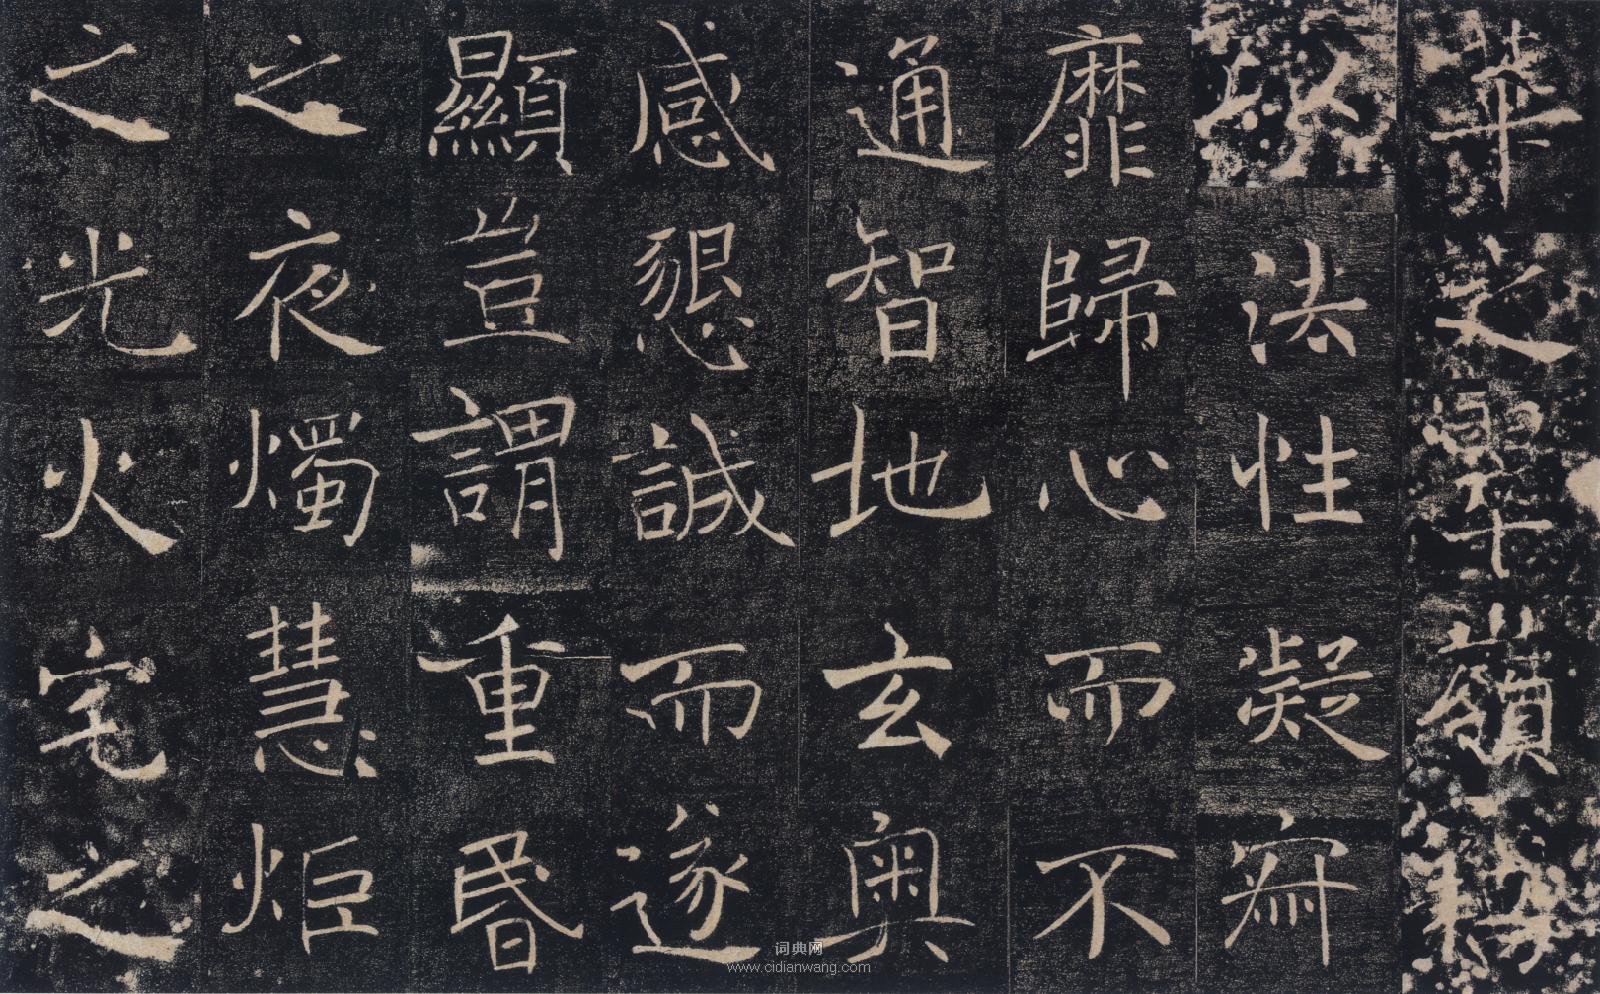 華之翠嶺
以法性凝寂
靡歸心而不
通智地玄奧
感懇誠而遂
顯豈謂重昏
之夜燭慧炬
之光火宅之
词典网
www.cidianwang.com